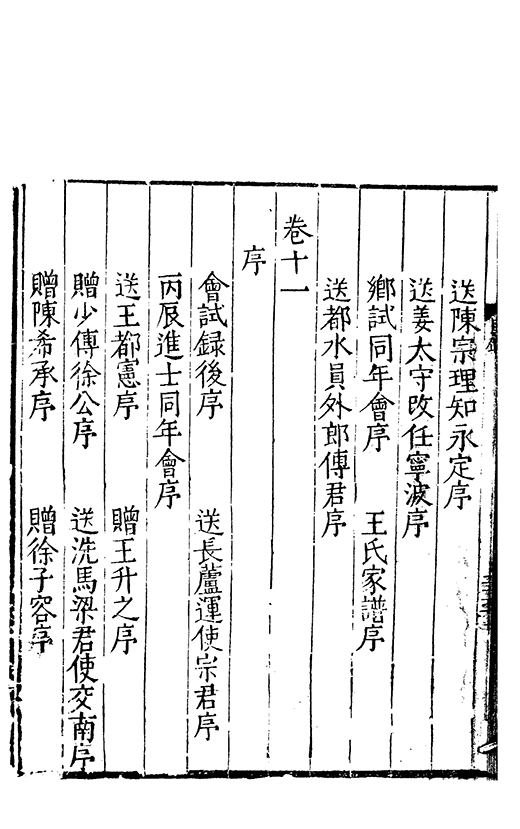 送陳宗理知永定序
送姜太守改任寧波序
鄉試同年會序　王氏家譜序
送都水員外郎傅君序
卷十一
序
會試録後序　送長蘆運使宗君序
丙辰進士同年會序
送王都憲序　贈王升之序
贈少傅徐公序　送洗馬梁君使交南序
贈陳希承序　贈徐子容序